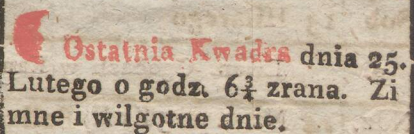 Ostatnia Kwadra dnia 25.
Lutego o godz. 6¾ zrana. Zi
mne i wilgotne dnie.